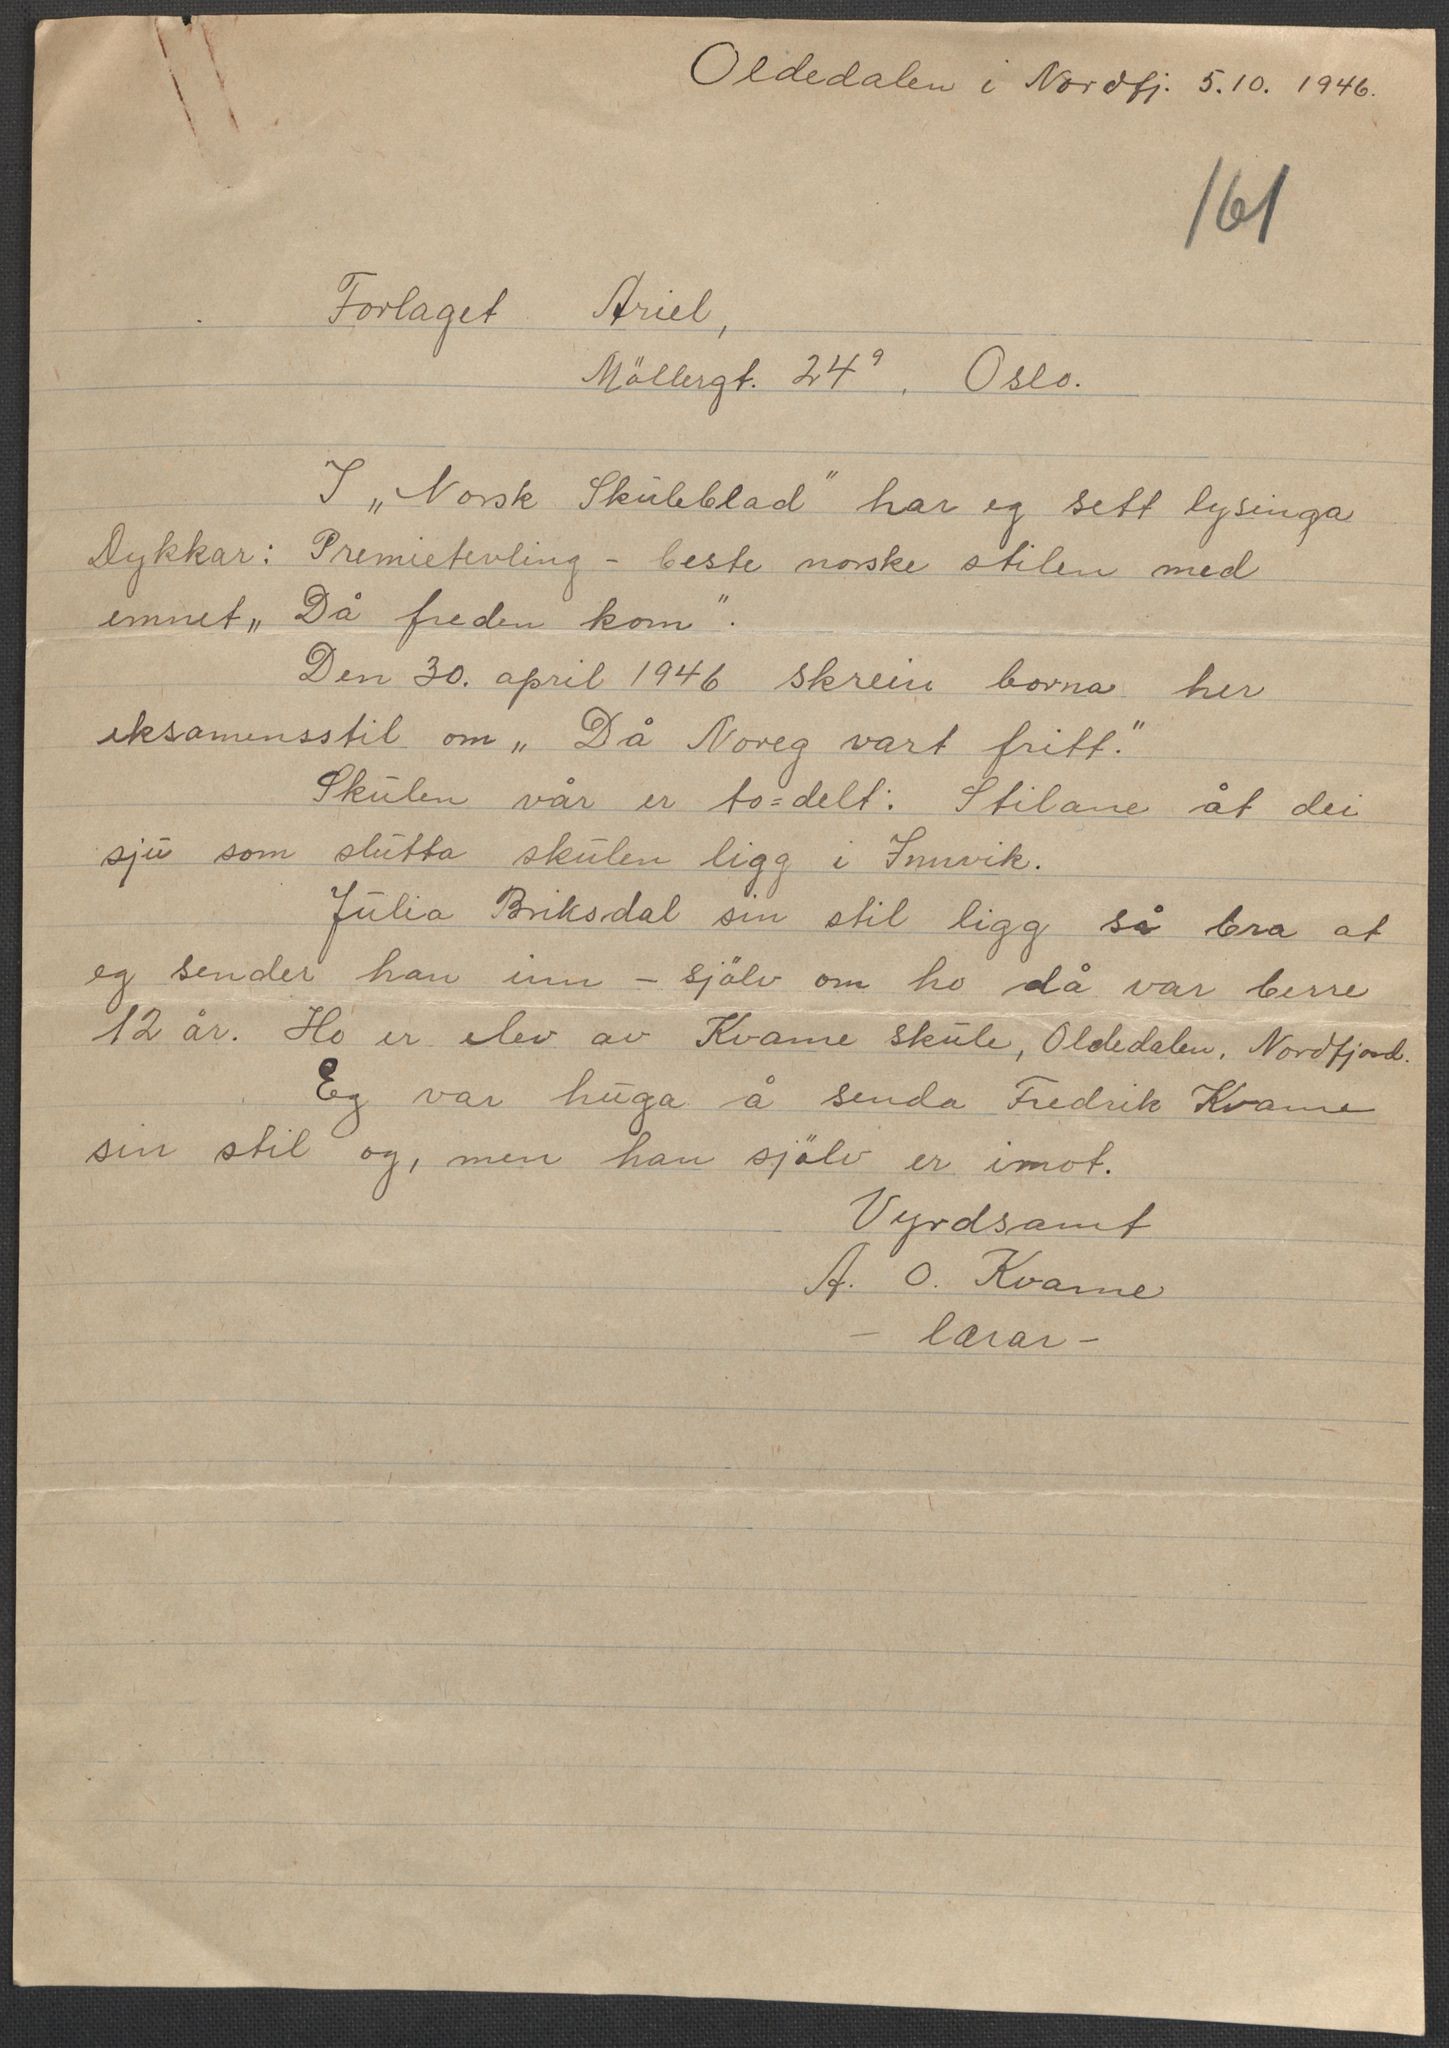 Oldedalen i Nordfj. 5.10. 1946.
161
Forlaget Ariel,
Möllergt. 24⁹, Oslo.
I „Norsk Skuleblad" har eg sett lysinga
Dykkar: Premietevling – beste norske stilen med
emnet „Då freden kom".
Den 30. april 1946 skreiv borna her
eksamensstil om „Då Noreg vart fritt."
Skulen vår er to=delt. Stilane åt dei
sju som slutta skulen ligg i Innvik.
Julia Briksdal sin stil ligg så bra at
eg sender han inn – själv om ho då var berre
12 år. Ho er elev av Kvame skule, Oldedalen, Nordfjord.
Eg var huga å senda Fredrik Kvame
sin stil og, men han själv er imot.
Vyrdsamt
A. O. Kvame
– lærar –